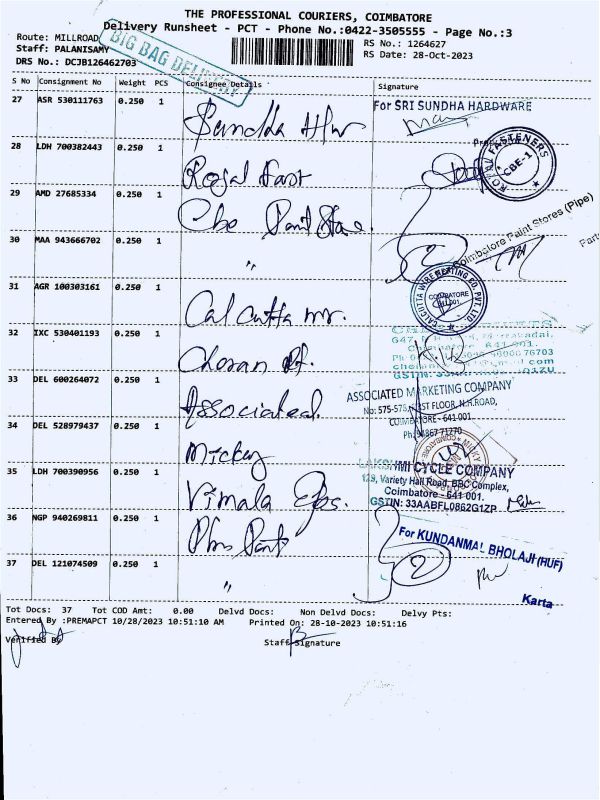 THE PROFESSIONAL COURIERS, COIMBATORE
Delivery Runsheet - PCT - Phone No.:0422-3505555 - Page No.:3
Route: MILLROAD
RS No.: 1264627
Staff: PALANISAMY
RS Date: 28-Oct-2023
DRS No.: DCJB126462703
BIG BAG DELIVERY
S No Consignment No Weight PCS Consignee Details Signature
27 ASR 530111763 0.250 1
For SRI SUNDHA HARDWARE
Sundha
28 LDH 700382443 0.250 1
Royal Fast
ROYAL FASTENERS
CBE-1
29 AMD 27685334 0.250 1
Cbe Paint Store
Coimbatore Paint Stores (Pipe)
30 MAA 943666702 0.250 1
"
2
31 AGR 100303161 0.250 1
Calcutta
COIMBATORE
32 IXC 530401193 0.250 1
Cheran
641 001.
76703
33 DEL 600264072 0.250 1
Associated
ASSOCIATED MARKETING COMPANY
FIRST FLOOR, N.H.ROAD,
COIMBATORE - 641 001.
Ph: 94867 71770
34 DEL 528979437 0.250 1
Mickey
LAKSHMI CYCLE COMPANY
129, Variety Hall Road, BBC Complex,
Coimbatore - 641 001.
GSTIN: 33AABFL0862G1ZP
35 LDH 700390956 0.250 1
Vimala
36 NGP 940269811 0.250 1
For KUNDANMAL BHOLAJI (HUF)
2
37 DEL 121074509 0.250 1
"
Karta
Tot Docs: 37 Tot COD Amt: 0.00 Delvd Docs: Non Delvd Docs: Delvy Pts:
Entered By :PREMAPCT 10/28/2023 10:51:10 AM Printed On: 28-10-2023 10:51:16
Verified By Staff Signature